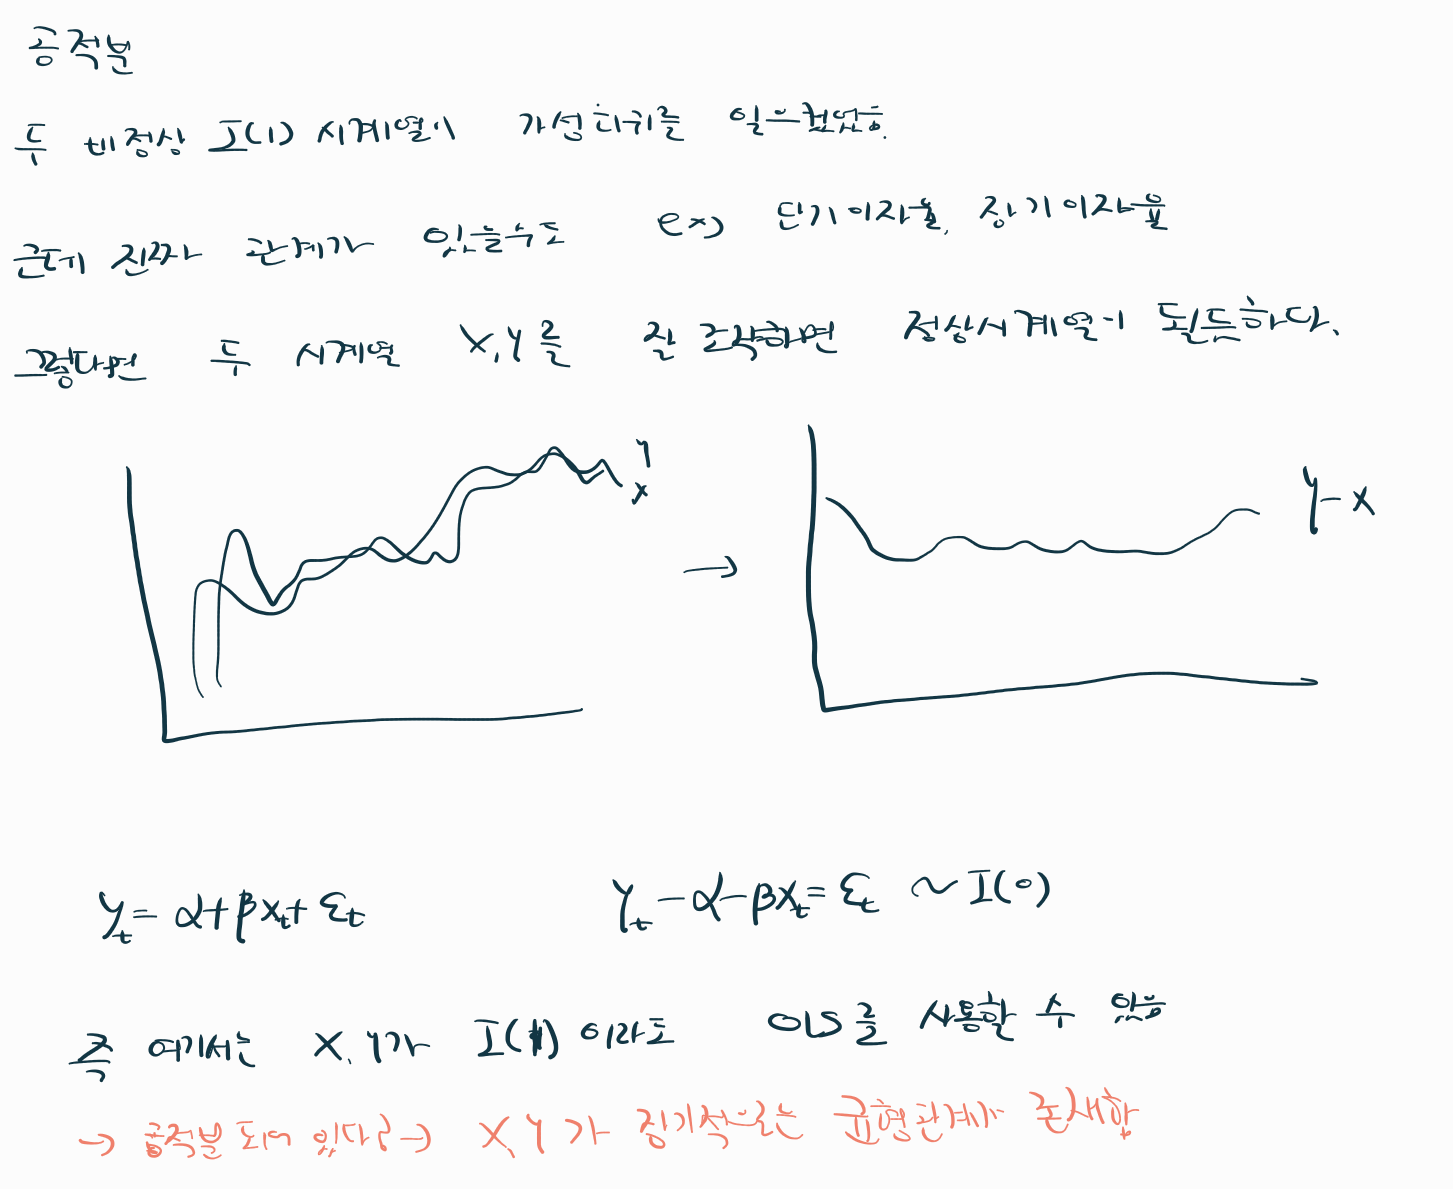 공적분
두 비정상 I(1) 시계열이 가성회귀를 일으켰었음.
근데 진짜 관계가 있을수도 ex) 단기이자율, 장기이자율
그렇다면 두 시계열 X,Y를 잘 조작하면 정상시계열이 될듯하다.
Y
X
→
Y-X
Yt = α+βXt+εt
Yt-α-βXt = εt ~ I(0)
즉 여기서는 X,Y가 I(1)이라도 OLS를 사용할 수 있음
→ 공적분 되어 있다? → X,Y가 장기적으로는 균형관계가 존재함